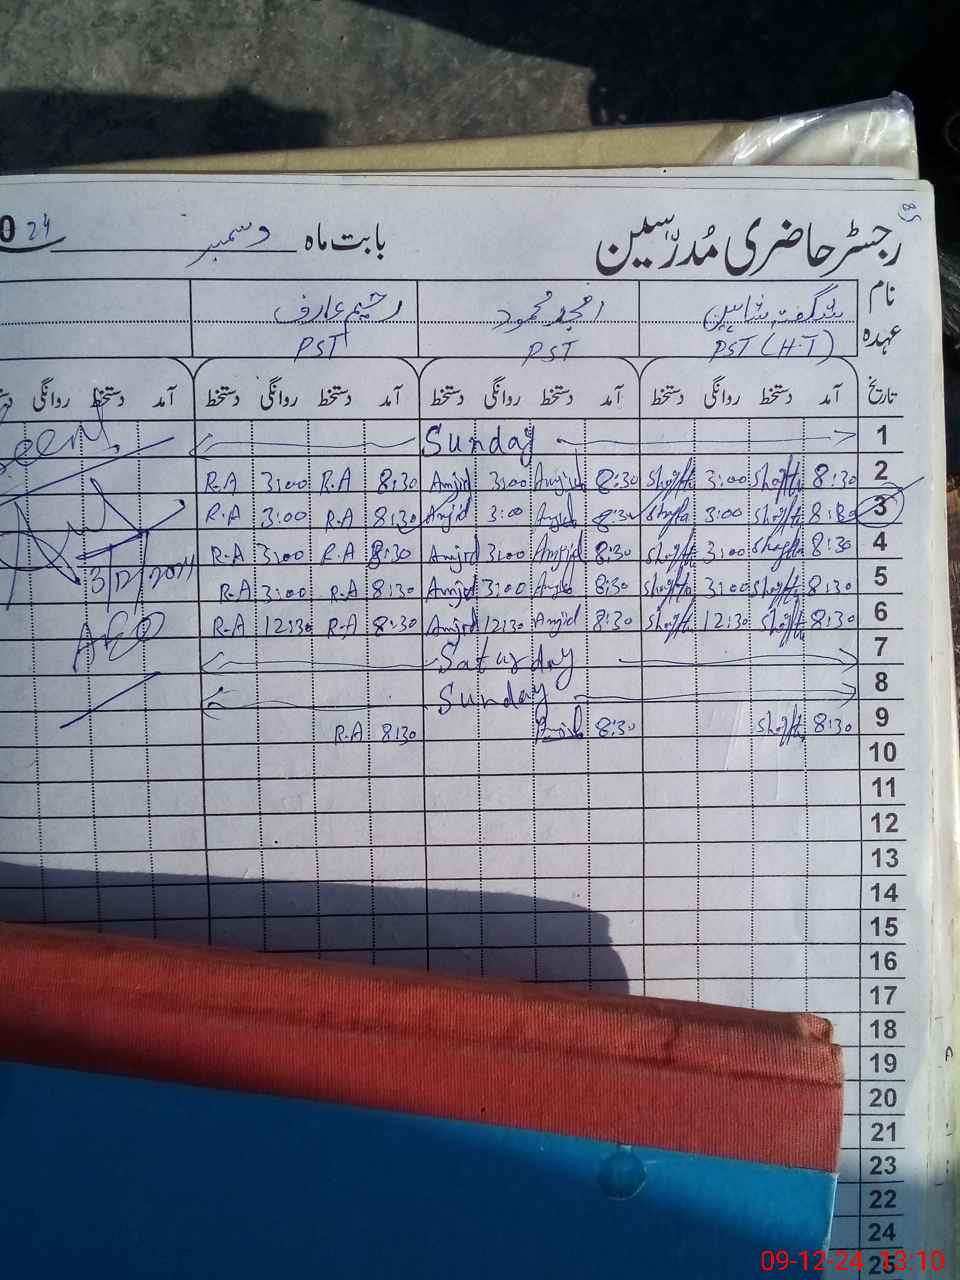 رجسٹر حاضری مُدرّسین بابت ماہ دسمبر 24
نام شگفتہ شاہین امجد محمود رحیم عارف
عہدہ PST (H.T) PST PST
تاریخ آمد دستخط روانگی دستخط آمد دستخط روانگی دستخط آمد دستخط روانگی دستخط آمد دستخط روانگی
1 Sunday Seen
2 8:30 3:00 8:30 Amjid 3:00 Amjid 8:30 R.A 3:00 R.A
3 8:30 3:00 8:30 Amjid 3:00 Amjid 8:30 R.A 3:00 R.A
4 8:30 3:00 8:30 Amjid 3:00 Amjid 8:30 R.A 3:00 R.A
5 8:30 3:00 8:30 Amjid 3:00 Amjid 8:30 R.A 3:00 R.A 3/12/2024
6 8:30 12:30 8:30 Amjid 12:30 Amjid 8:30 R.A 12:30 R.A
7 Saturday AEO
8 Sunday
9 8:30 8:30 Amjid 8:30 R.A
10
11
12
13
14
15
16
17
18
19
20
21
23
22
24
25
09-12-24 13:10